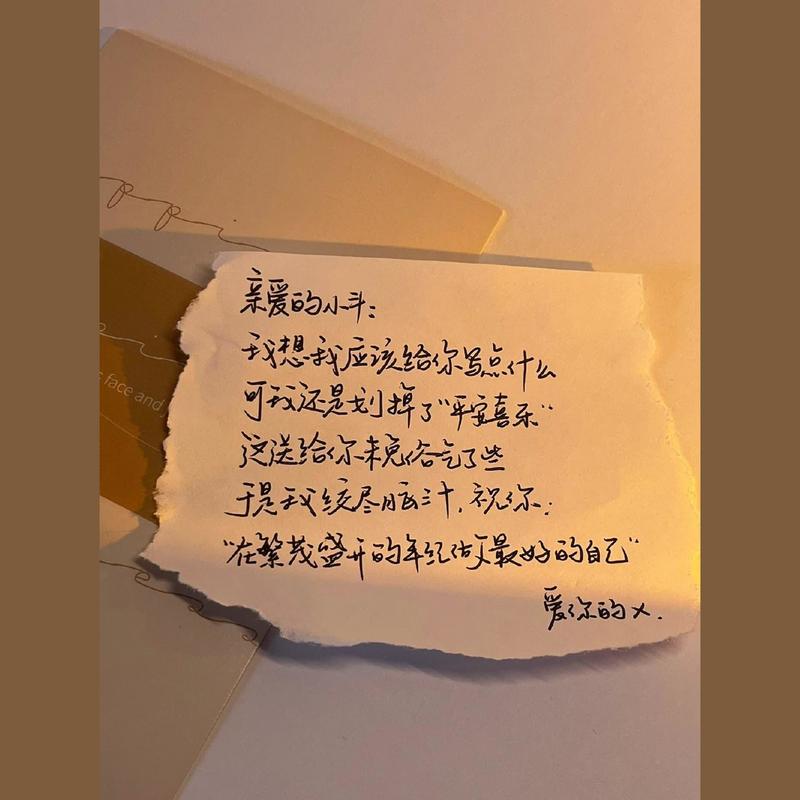 ppi
i
s face and
亲爱的小斗：
我想我应该给你写点什么
可我还是划掉了“平安喜乐”
这送给你未免俗气了些
于是我绞尽脑汁，祝你：
“在繁茂盛开的年纪做最好的自己”
爱你的X.